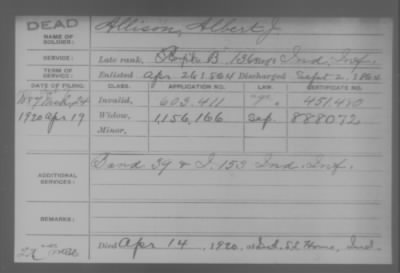 DEAD
Allison, Albert J
NAME OF SOLDIER:
SERVICE: Late rank, Co. B, 136 Reg't Ind. Inf.
TERM OF SERVICE: Enlisted Apr 26 1864 Discharged Sept 2, 1864
DATE OF FILING. CLASS. APPLICATION NO. LAW. CERTIFICATE NO.
1887 24 Invalid, 603.411 451.480
1920 Apr 19 Widow, 1,156,166 888072
Minor,
ADDITIONAL SERVICES: F and 39 & I. 153 Ind. Inf.
REMARKS:
Died Apr 14, 1920, at Home, Ind.